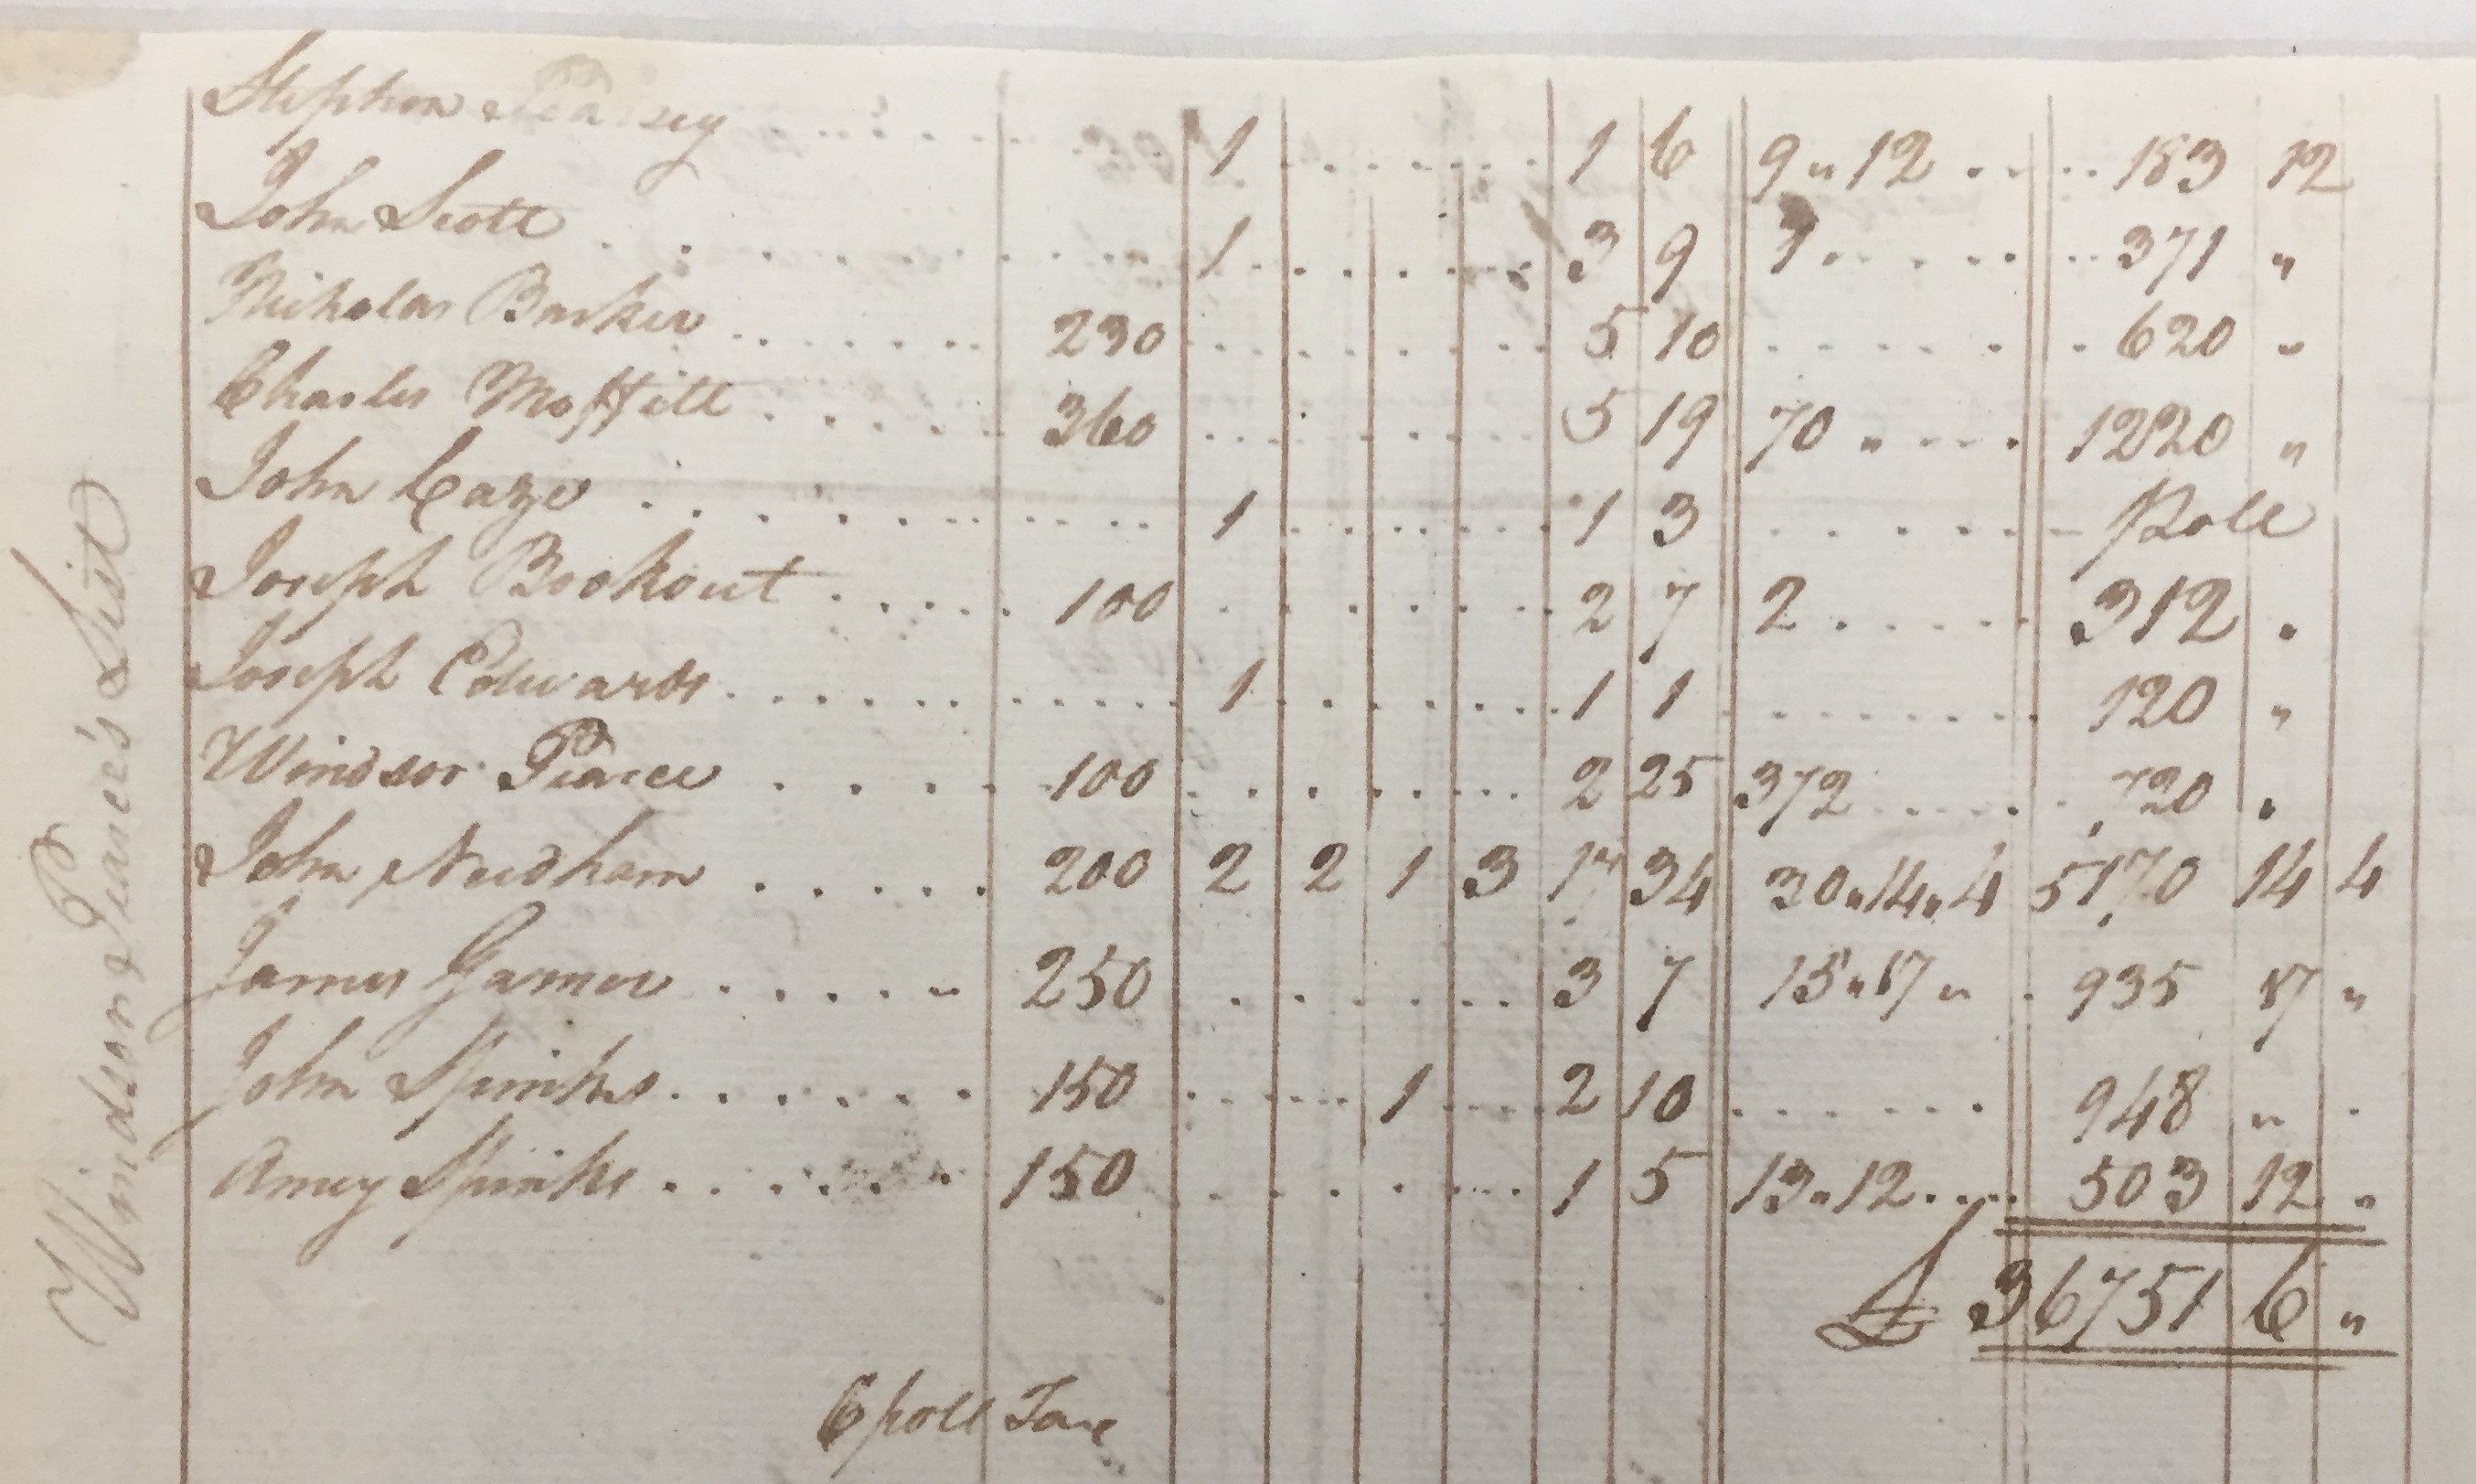 Windsor Pearce's List
Stephen Pearsey 1 1 6 9 " 12 183 12
John Scott 1 3 9 371 "
Nicholas Barker 230 5 10 620 "
Charles Moffitt 360 5 19 70 " 1220 "
John Caze 1 1 3 Poll
Joseph Bookout 100 2 7 2 312 "
Joseph Edwards 1 1 1 120 "
Windsor Pearce 100 2 25 372 720 "
John Needham 200 2 2 1 3 17 34 30 " 14 " 4 5170 14 4
James Garner 250 3 7 15 " 17 " 935 17 "
John Spinks 150 1 2 10 948 "
Amey Spinks 150 1 5 13 " 12 503 12 "
£ 36751 6 "
6 poll Tax